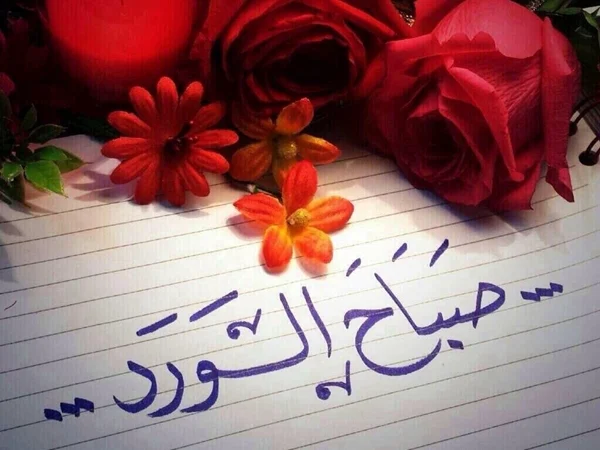 ...صباح الورد...